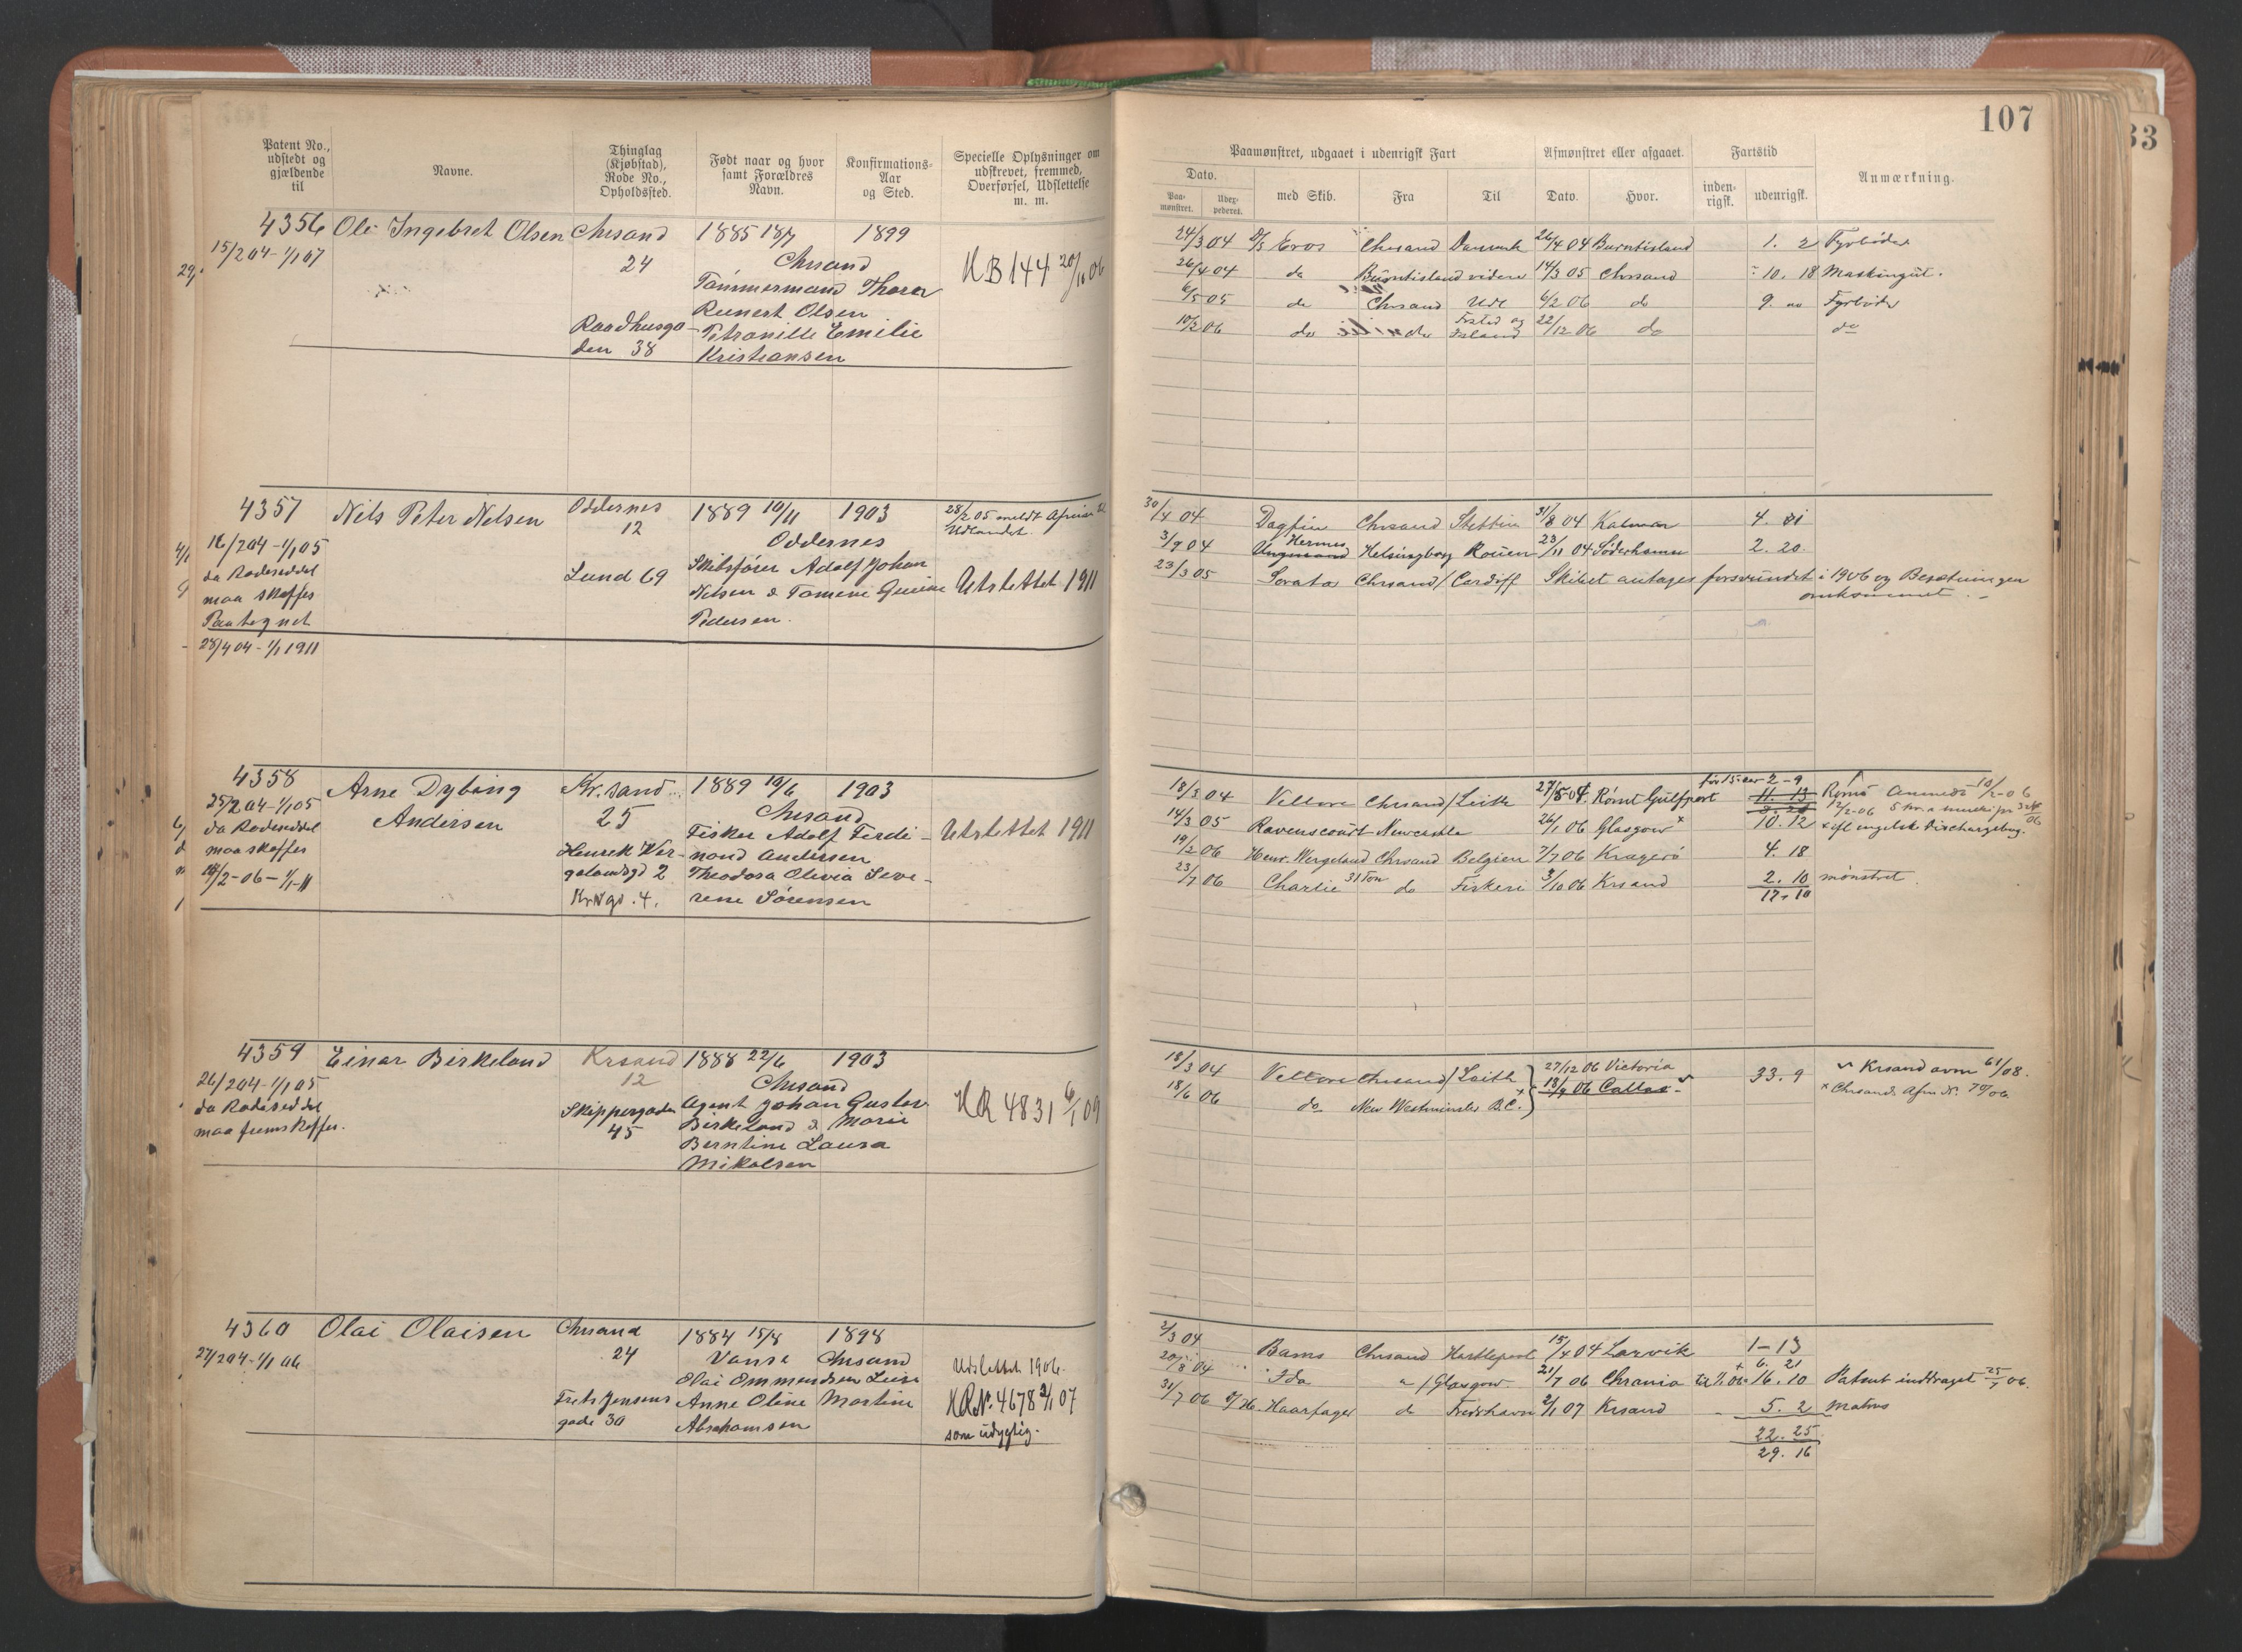 107
33
Patent No., udstedt og gjældende til
Navne.
Thinglag (Kjøbstad), Rode No., Opholdssted.
Født naar og hvor samt Forældres Navn.
Konfirmations-Aar og Sted.
Specielle Oplysninger om udskrevet, fremmed, Overførsel, Udslettelse m. m.
Paamønstret, udgaaet i udenrigsk Fart
Afmønstret eller afgaaet.
Fartstid
Anmærkning.
Dato.
Paa-mønstret.
Udex-pederet.
med Skib.
Fra
Til
Dato.
Hvor.
inden-rigsk.
udenrigsk.
4356 Ole Ingebret Olsen Chrsand 1885 18/7 1899
15/2 04 - 1/1 07
24 Chrsand KB 144 20/11 06
Tømmermand Thorer
Reinert Olsen
Raadhusga- Petronille Emilie
den 38 Kristiansen
24/3 04 D/S Eros Chrsand Danmark 26/4 04 Burntisland 1. 2 Fyrbøder
26/4 04 do Burntisland videre 14/3 05 Chrsand 10. 18 Maskingut.
6/5 05 do Chrsand Ude 6/2 06 do 9. Fyrbøder
10/2 06 do do Island 22/12 06 do do
4357 Nils Peter Nelsen Oddernes 1889 10/11 1903 28/2 05 meldt
12 Oddernes Udlandet.
16/2 04 - 1/1 05
da Rodeseddel Lund 69 Skibsfører Adolf Johan
maa skaffes Nelsen & Tomine Pedersen. Utslettet 1911
Paategnet
28/4 04 - 1/1 1911
30/4 04 Dagfin Chrsand Stettin 31/8 04 Kalmar 4.
3/9 04 Hermes Helsingborg Rouen 23/11 04 Söderhamn 2. 20.
23/3 05 Sorata Chrsand / Cardiff Skibet antages forsvundet i 1906 og Besætningen
omkommet. -
4358 Arne Dybing Kr.sand 1889 19/6 1903
25/2 04 - 1/1 05 Andersen 25 Chrsand
da Rodeseddel Fisker Adolf Ferdi- Utslettet 1911
maa skaffes Henrik Wer- nand Andersen
/2 - 06 - 1/1 - 11 gelandsgd 2 Theodora Olivia Seve-
Krvgs. 4. rene Sørensen
18/3 04 Vellore Chrsand / Leith 27/5 04 Rømt Gulfport før 15 aar 2 - 9 11. 13 Rømn Anmeldt 10/2 - 06
14/3 05 Ravenscourt Newcastle 26/1 06 Glasgow x 10. 12 x ifl engelsk Dischargebog.
19/2 06 Henr. Wergeland Chrsand Belgien 7/7 06 Kragerö 4. 18
23/7 06 Charlie 31 Ton do Fiskeri 3/10 06 Krsand 2. 10 mønstret.
17. 10
4359 Einar Birkeland Krsand 1888 22/6 1903
26/2 04 - 1/1 05 12 Chrsand
da Rodeseddel Skippergaden Agent Johan Gustav HR 4831 6/1 09
maa fremskaffes. 45 Birkeland & Marie
Berntine Laura
Mikalsen
18/3 04 Vellore Chrsand / Leith 27/12 06 Victoria 33. 9 Krsand avm 61/08.
18/6 06 do New Westminster B.C. x 13/9 06 Callao x Chrsands Afm N. 70/06
4360 Olai Olaisen Chrsand 1884 15/8 1898
27/2 04 - 1/1 06 24 Vanse Chrsand Udslettet 1906.
Olai Ommundsen
Frets Jensens Anne Oline Martine HR No. 4678 2/1 07
gade 30 Abrahamsen som udygtig.
2/3 04 Bams Chrsand Hartlepool 15/4 04 Larvik 1 - 13
20/8 04 Ida " / Glasgow 21/7 06 Chrania til 1/1 06 + 6. 21 16. 10 Patent inddraget 25/7 06.
31/7 06 Haarfager do Fredrhavn 2/1 07 Krsand 5. 2 Matros
22. 25
29. 16